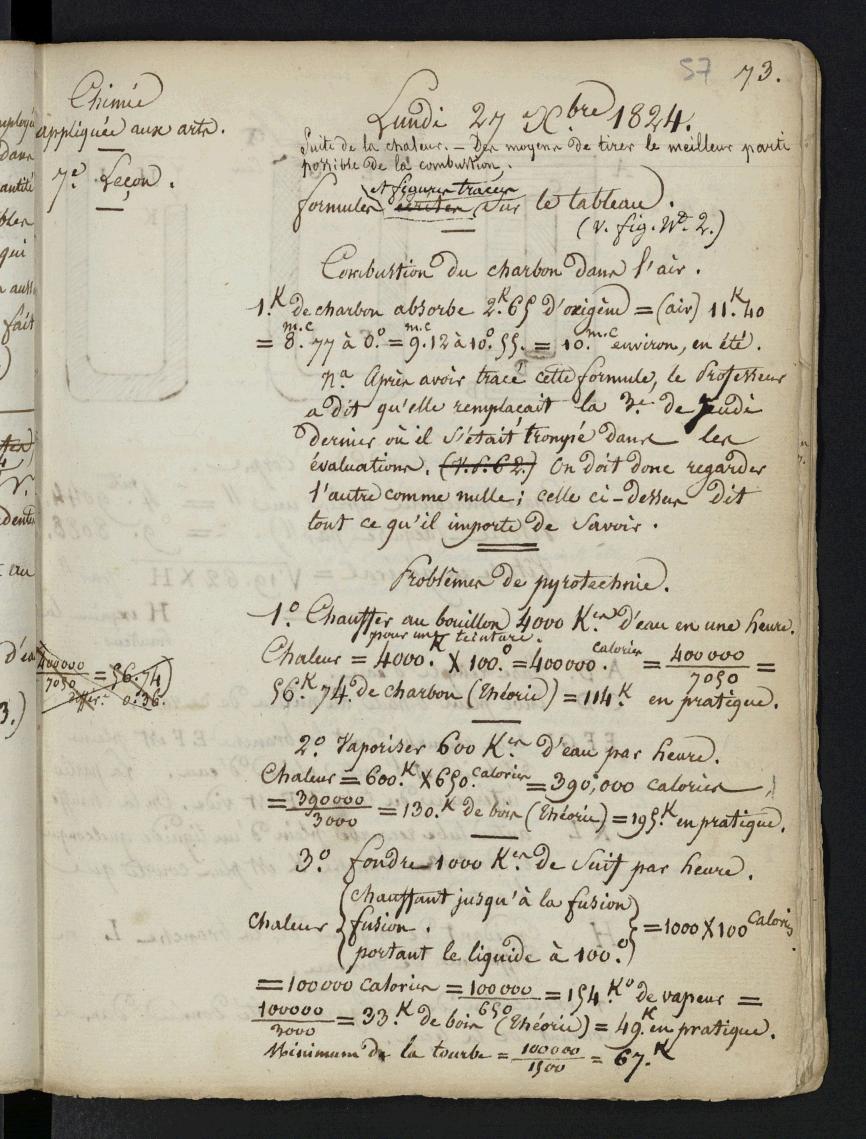 57 73.
Chimie
appliquée aux arts.
7.e Leçon.
Lundi 27 X.bre 1824.
Suite de la chaleur. — Des moyens de tirer le meilleur parti
possible de la combustion.
et figures tracées
formules écrites sur le tableau.
(v. fig. N° 2.)
Combustion du charbon dans l'air.
1.K de charbon absorbe 2.K65 d'oxigène = (air) 11.K40
= 8.m.c 77 à 0.° = 9.m.c 12 à 10.° 55. = 10.m.c environ, en été.
n.a Après avoir tracé cette formule, le Professeur
a dit qu'elle remplaçait la 3.e de Jeudi
dernier où il s'était trompé dans les
évaluations. (v. p. 62.) On doit donc regarder
l'autre comme nulle; celle ci-dessus dit
tout ce qu'il importe de savoir.
Problêmes de pyrotechnie.
1.° Chauffer au bouillon 4000 K.es d'eau en une heure.
pour une teinture.
Chaleur = 4000.K X 100.° = 400000.calories = 400000/7050 =
56.K 74.° de charbon (théorie) = 114.K en pratique.
400000/7050 = 56.74
differ.ce 0.36.
2.° Vaporiser 600 K.es d'eau par heure.
Chaleur = 600.K X 650.calories = 390,000 calories
= 390000/3000 = 130.K de bois (théorie) = 195.K en pratique.
3.° fondre 1000 K.es de suif par heure.
Chaleur { chauffant jusqu'à la fusion
fusion.
portant le liquide à 100.° } = 1000 X 100 calories.
= 100000 calories = 100000/650 = 154.K° de vapeur =
100000/3000 = 33.K de bois (théorie) = 49.K en pratique.
Minimum de la tourbe = 100000/1500 = 67.K